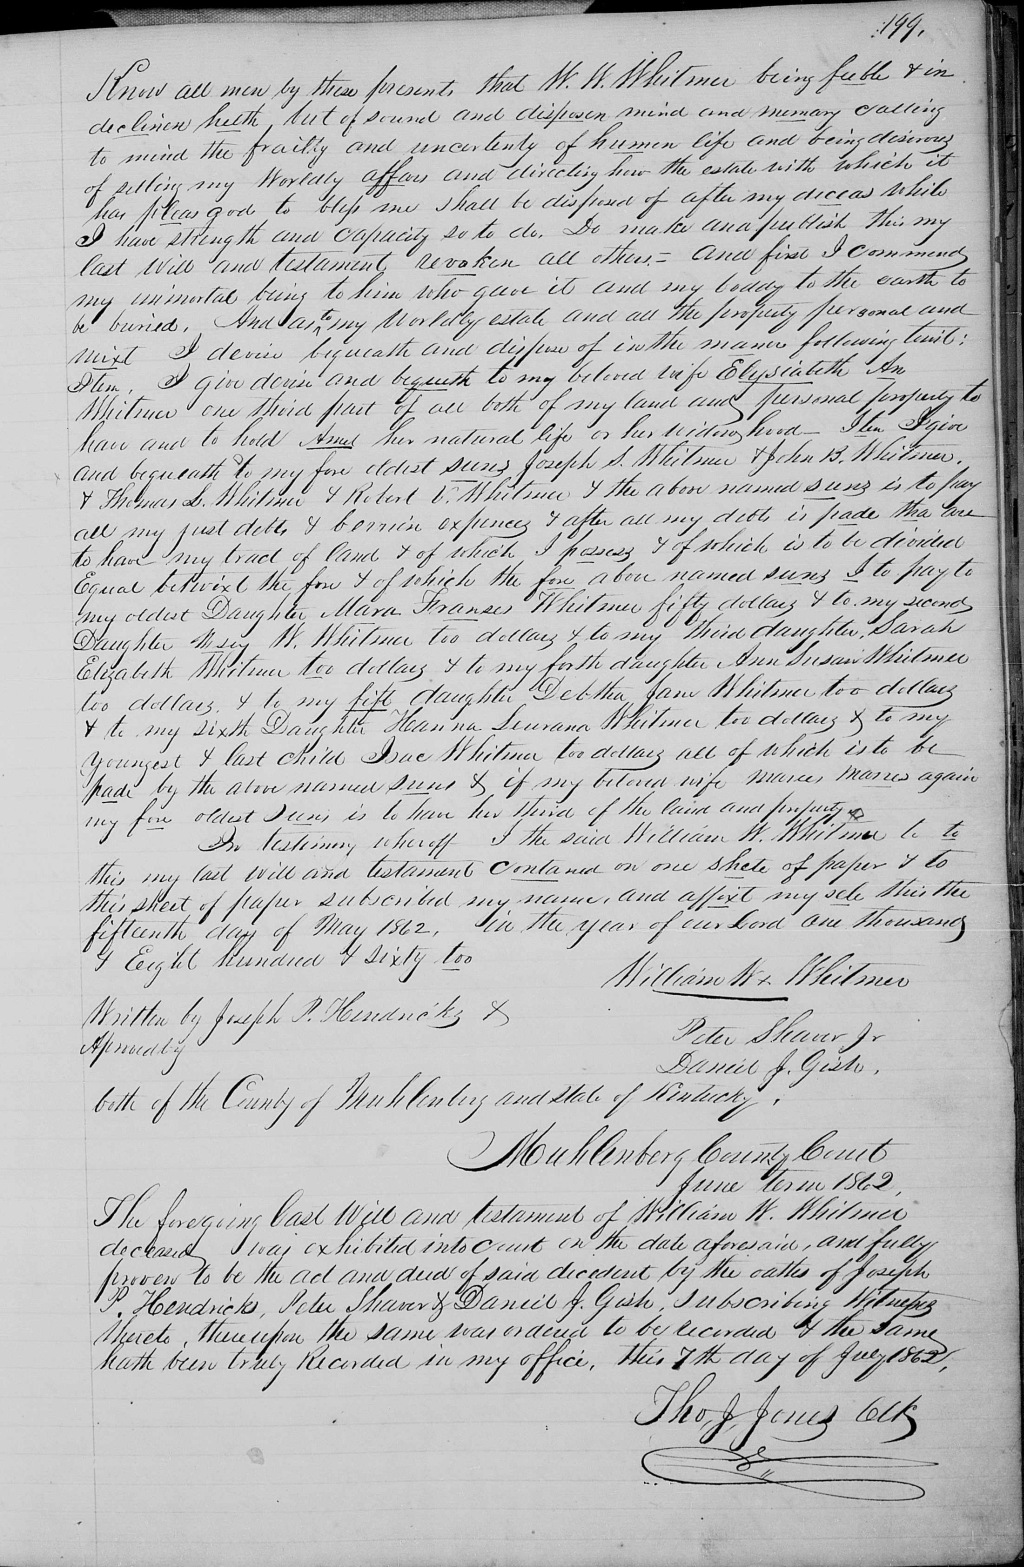 199.
Know all men by these presents that W. W. Whitmer being feeble & in
declinen helth, but of sound and disposen mind and memory calling
to mind the frailty and uncertenty of humen life and being desirous
of selling my Worldly affars and directing how the estate with which it
has pleas god to bless me shall be disposed of after my deceas while
I have strength and capacity so to do. Do make and publish this my
last Will and testament revoken all others.= and first I commend
my immortal being to him who gave it and my boddy to the earth to
be buried. And as to my Worldly estate and all the property personal and
mixt I devise bequeath and dispose of in the maner following towit:
Item. I give devise and bequeth to my beloved wife Elysiabeth An
Whitmer one third part of all both of my land and personal property to
have and to hold her natural life or her widowhood — Item I give
and bequeath to my fore oldest suns Joseph S. Whitmer & John B. Whitmer,
& Thomas D. Whitmer & Robert V. Whitmer & the above named suns is to pay
all my just debts & berrien expences & after all my debts is pade tha are
to have my tract of land & of which I possess & of which is to be divided
Equal betwixt the fore & of which the fore above named suns I to pay to
my oldest Daughter Mara Franses Whitmer fifty dollars & to my second
Daughter W. Whitmer too dollars & to my third daughter, Sarah
Elizabeth Whitmer too dollars & to my forth daughter Ann Susan Whitmer
too dollars, & to my fift daughter Debtha Jane Whitmer too dollars
& to my sixth Daughter Hanna Leurana Whitmer too dollars & to my
youngest & last child Isac Whitmer too dollars all of which is to be
pade by the above named suns & if my beloved wife marees marres again
my fore oldest suns is to have her third of the land and property &
In testimny wheroff I the said William W. Whitmer to to
this my last will and testament contaned on one shete of paper & to
this sheet of paper subscribed my name, and affixt my sele this the
fifteenth day of May 1862, in the year of our Lord one thousand
& Eight hundred & sixty too
William W x Whitmer
Written by Joseph P. Hendricks &
Aproved by
Peter Shaver Jr
Daniel J. Gish.
both of the County of Muhlenberg and state of Kentucky.
Muhlenberg County Court
June term 1862.
The foregoing Last Will and testament of William W. Whitmer
deceased was exhibited into court on the date aforesaid, and fully
proven to be the act and deed of said decedent by the oaths of Joseph
P. Hendricks, Peter Shaver & Daniel J. Gish, subscribing Witness
thereto, thereupon the same was ordered to be recorded & the same
hath been truly Recorded in my office, this 7th day of July 1862,
Tho. J. Jones Clk